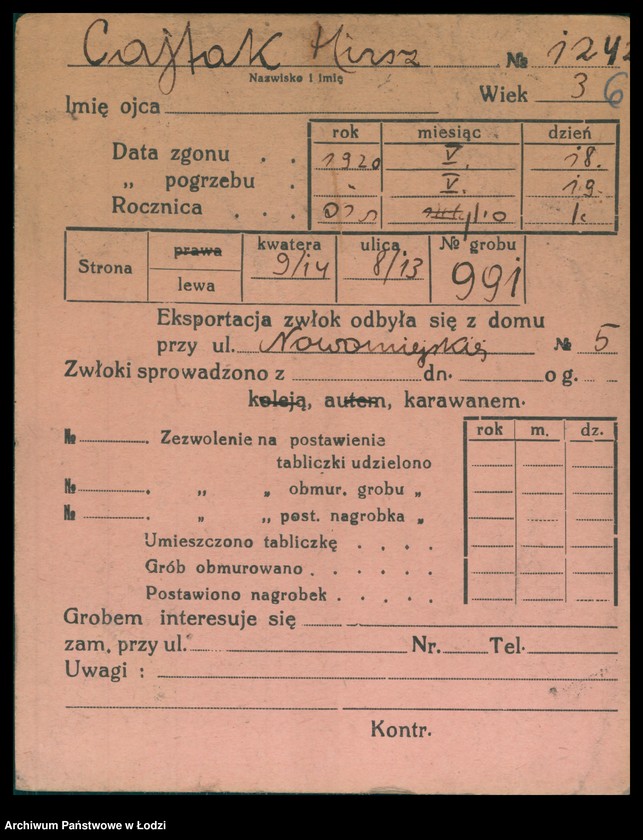 Cajtak Hirsz № 1242
Nazwisko i imię
Wiek 36
Imię ojca
rok miesiąc dzień
Data zgonu . . 1920 V. 18.
„ pogrzebu . V. 19.
Rocznica . . .
Strona prawa kwatera ulica № grobu
lewa 9/14 8/13 991
Eksportacja zwłok odbyła się z domu
przy ul. Nowomiejskiej № 5
Zwłoki sprowadzono z dn. o g.
koleją, autem, karawanem.
rok m. dz.
№ . Zezwolenie na postawienie
tabliczki udzielono
№ . „ „ obmur. grobu „
№ . „ „ post. nagrobka „
Umieszczono tabliczkę . . . .
Grób obmurowano . . . . .
Postawiono nagrobek . . . .
Grobem interesuje się
zam. przy ul. Nr. Tel.
Uwagi :
Kontr.
Archiwum Państwowe w Łodzi